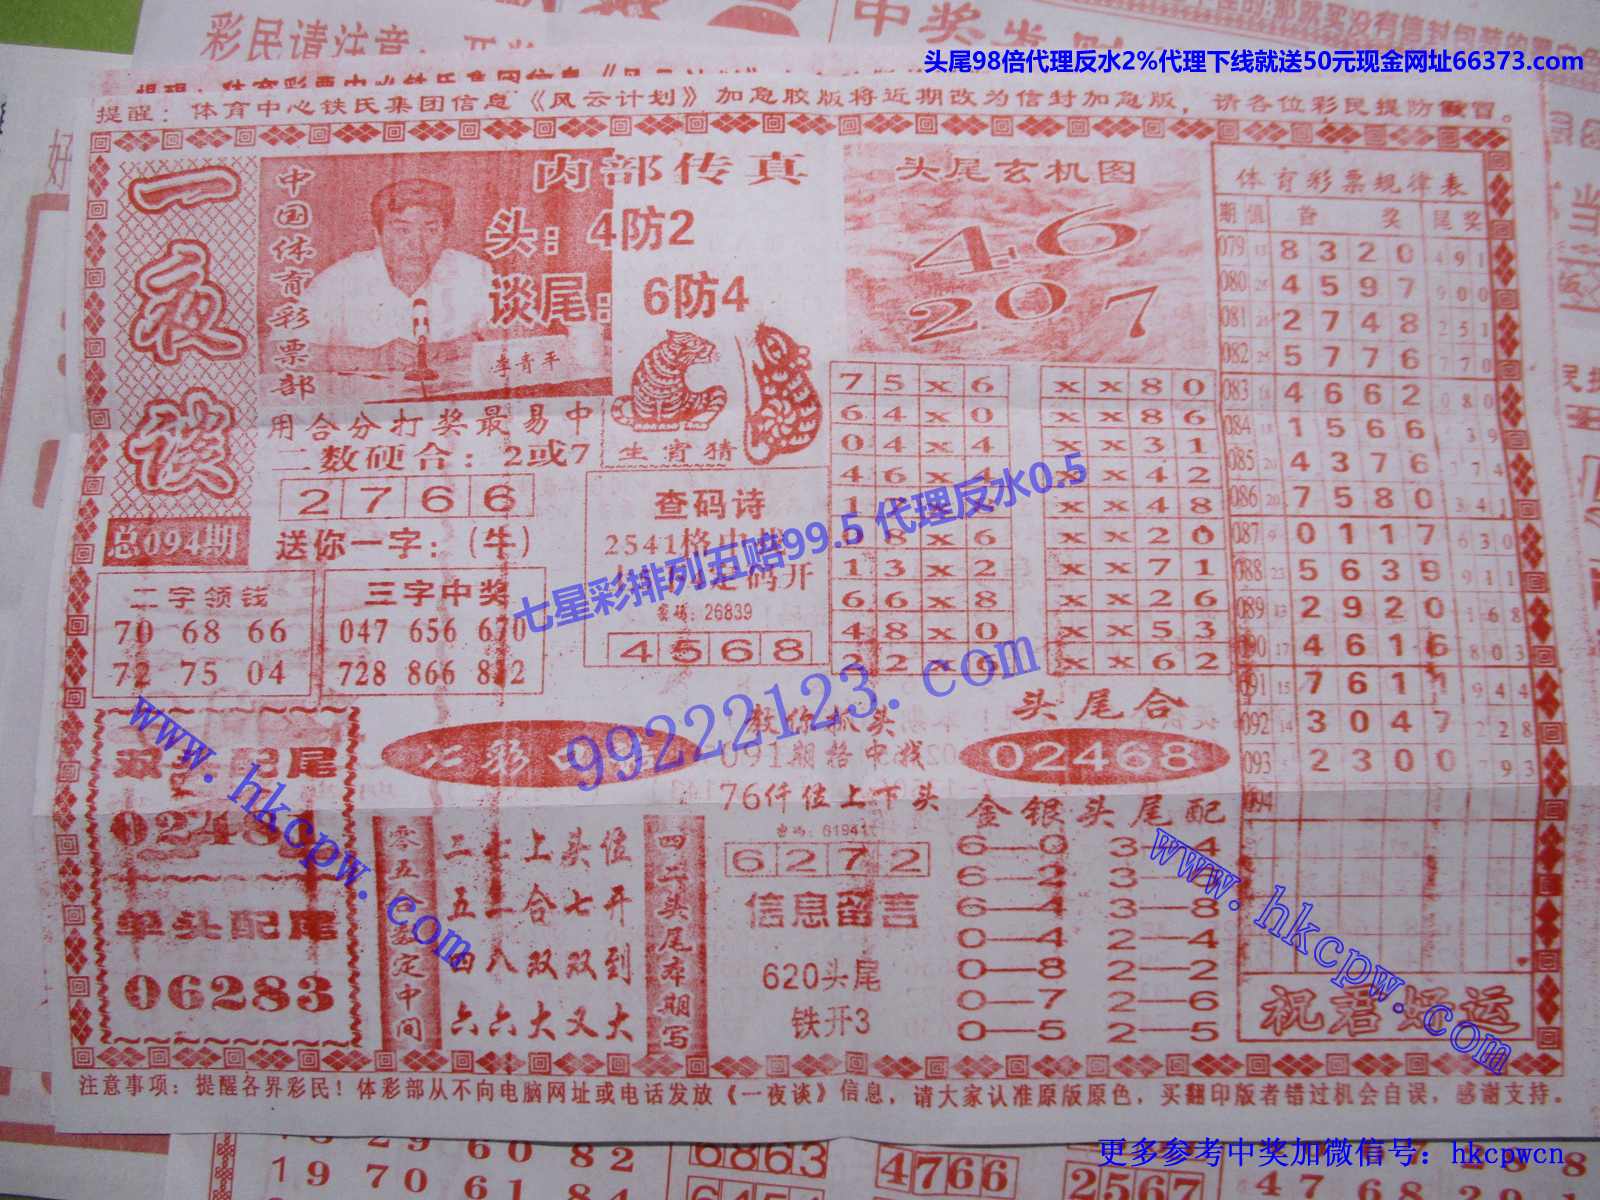 彩民请注意
中奖
头尾98倍代理反水2%代理下线就送50元现金网址66373.com
提醒：体育中心铁氏集团信息《风云计划》加急胶版将近期改为信封加急版，请各位彩民提防假冒。
一夜谈
总094期
中国体育彩票部
内部传真
头：4防2
谈尾：6防4
李青平
用合分打奖最易中
二数硬合：2或7
2766
送你一字：（牛）
生肖猜
头尾玄机图
46
207
75x6 xx80
64x0 xx86
04x4 xx31
46x4 xx42
xx48
xx20
13x2 xx71
66x8 xx26
48x0 xx53
22x6 xx62
查码诗
密码：26839
4568
七星彩排列五赔99.5 代理反水0.5
99222123.com
二字领钱
70 68 66
72 75 04
三字中奖
047 656 670
728 866 812
双头配尾
单头配尾
06283
www.hkcpw.com
教你抓头
091期格中找
76仟位上下头
6272
信息留言
620头尾
铁开3
零五合数定中间
二七上头位
五二合七开
四八双双到
六六大又大
四二头尾本期写
头尾合
02468
金银头尾配
6—0 3—4
6—2
6—4 3—8
0—4 2—4
0—8 2—2
0—7 2—6
0—5 2—5
www.hkcpw.com
体育彩票规律表
期 值 首奖 尾奖
079 8320 491
080 4597 900
081 2748 251
082 5776 770
083 4662 080
084 1566
085 4376
086 7580 341
087 0117 630
088 5639 911
089 2920 168
090 4616 803
091 7611 944
092 3047 228
093 2300 793
094
祝君好运
注意事项：提醒各界彩民！体彩部从不向电脑网址或电话发放《一夜谈》信息，请大家认准原版原色，买翻印版者错过机会自误，感谢支持。
更多参考中奖加微信号：hkcpwcn
1970 6184
6863
4766
2567